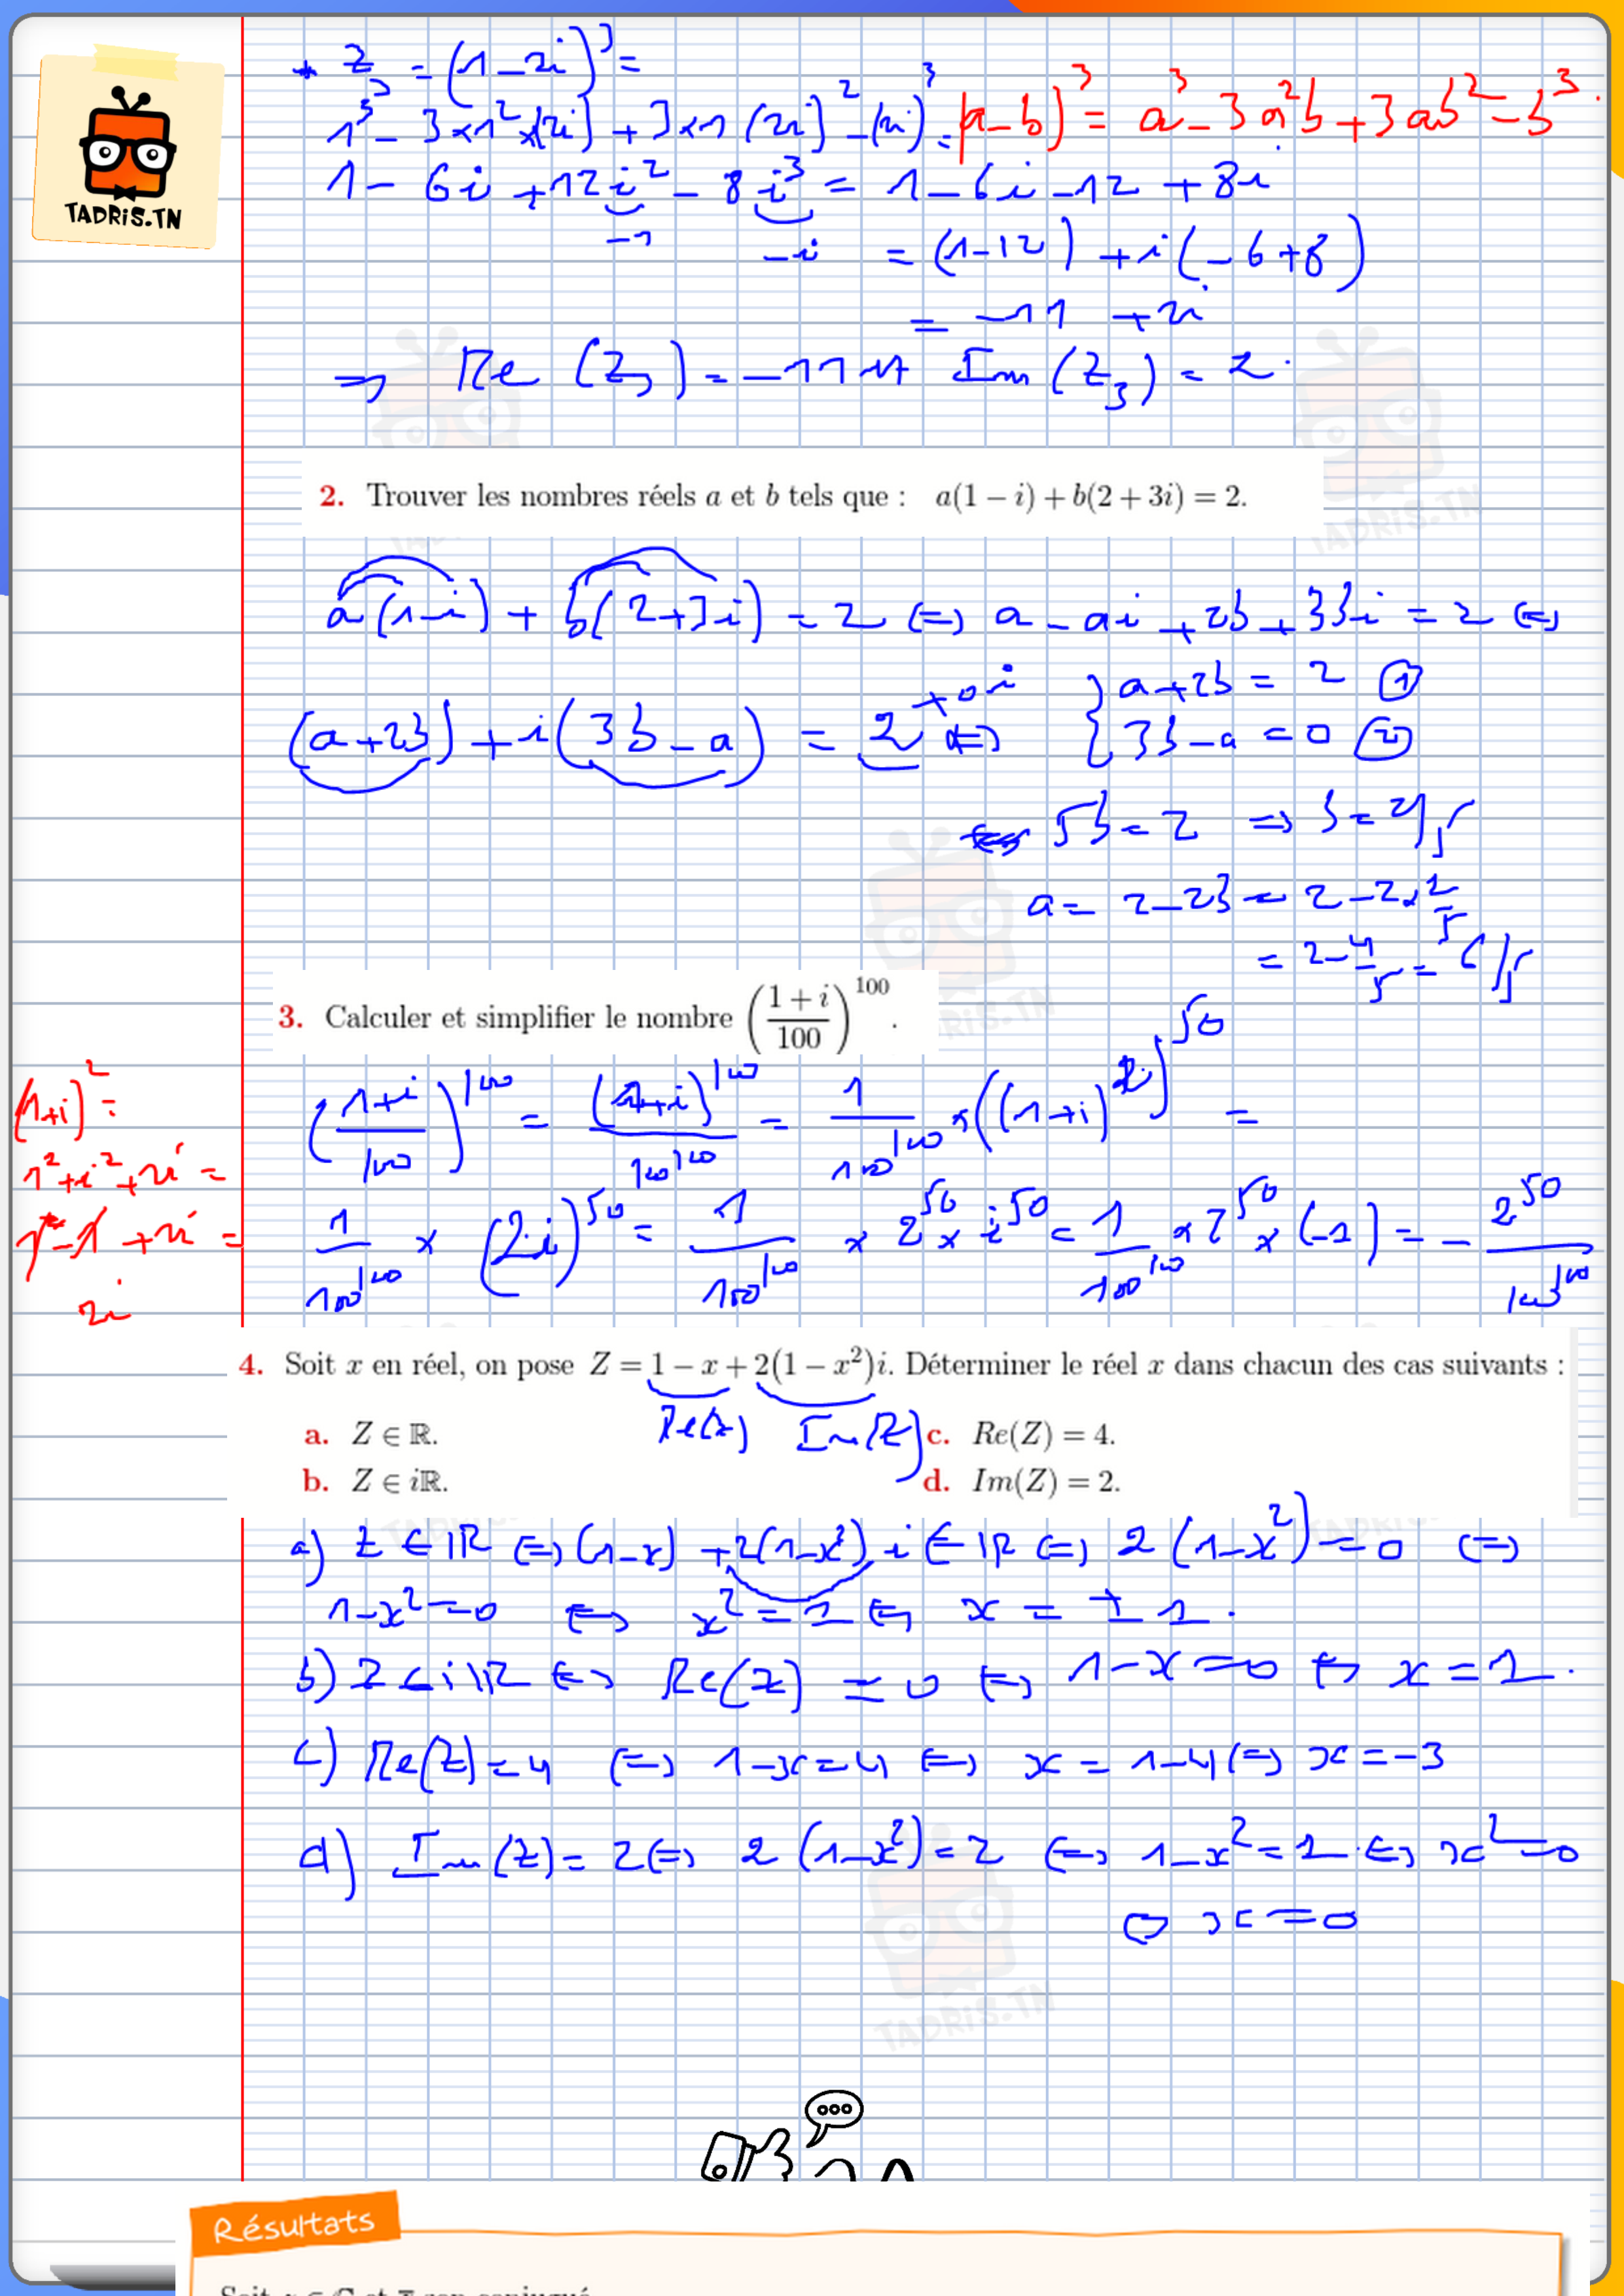 * z₃ = (1-2i)³ =
1³ - 3×1²×(2i) + 3×1(2i)² - (2i)³ = (a-b)³ = a³ - 3a²b + 3ab² - b³.
1 - 6i + 12i² - 8i³ = 1 - 6i - 12 + 8i
-1 -i = (1-12) + i(-6+8)
= -11 + 2i
⇒ Re(z₃) = -11 et Im(z₃) = 2.
TADRIS.TN
2. Trouver les nombres réels a et b tels que : a(1 − i) + b(2 + 3i) = 2.
a(1-i) + b(2+3i) = 2 ⇔ a - ai + 2b + 3bi = 2 ⇔
(a+2b) + i(3b-a) = 2 + 0i ⇔ { a+2b = 2 ①
3b-a = 0 ②
5b = 2 ⇒ b = 2/5
a = 2-2b = 2-2×2/5
= 2-4/5 = 6/5
3. Calculer et simplifier le nombre ((1+i)/100)^100.
(1+i)² =
1²+i²+2i =
1-1+2i =
2i
((1+i)/100)^100 = (1+i)^100/100^100 = 1/100^100 × ((1+i)²)^50 =
1/100^100 × (2i)^50 = 1/100^100 × 2^50 × i^50 = 1/100^100 × 2^50 × (-1) = - 2^50/100^100
4. Soit x en réel, on pose Z = 1 − x + 2(1 − x²)i. Déterminer le réel x dans chacun des cas suivants :
Re(z) Im(Z)
a. Z ∈ ℝ. c. Re(Z) = 4.
b. Z ∈ iℝ. d. Im(Z) = 2.
a) Z ∈ ℝ ⇔ (1-x) + 2(1-x²)i ∈ ℝ ⇔ 2(1-x²) = 0 ⇔
1-x² = 0 ⇔ x² = 1 ⇔ x = ±1.
b) Z ∈ iℝ ⇔ Re(Z) = 0 ⇔ 1-x = 0 ⇔ x = 1.
c) Re(Z) = 4 ⇔ 1-x = 4 ⇔ x = 1-4 ⇔ x = -3
d) Im(Z) = 2 ⇔ 2(1-x²) = 2 ⇔ 1-x² = 1 ⇔ x² = 0
⇔ x = 0
Résultats